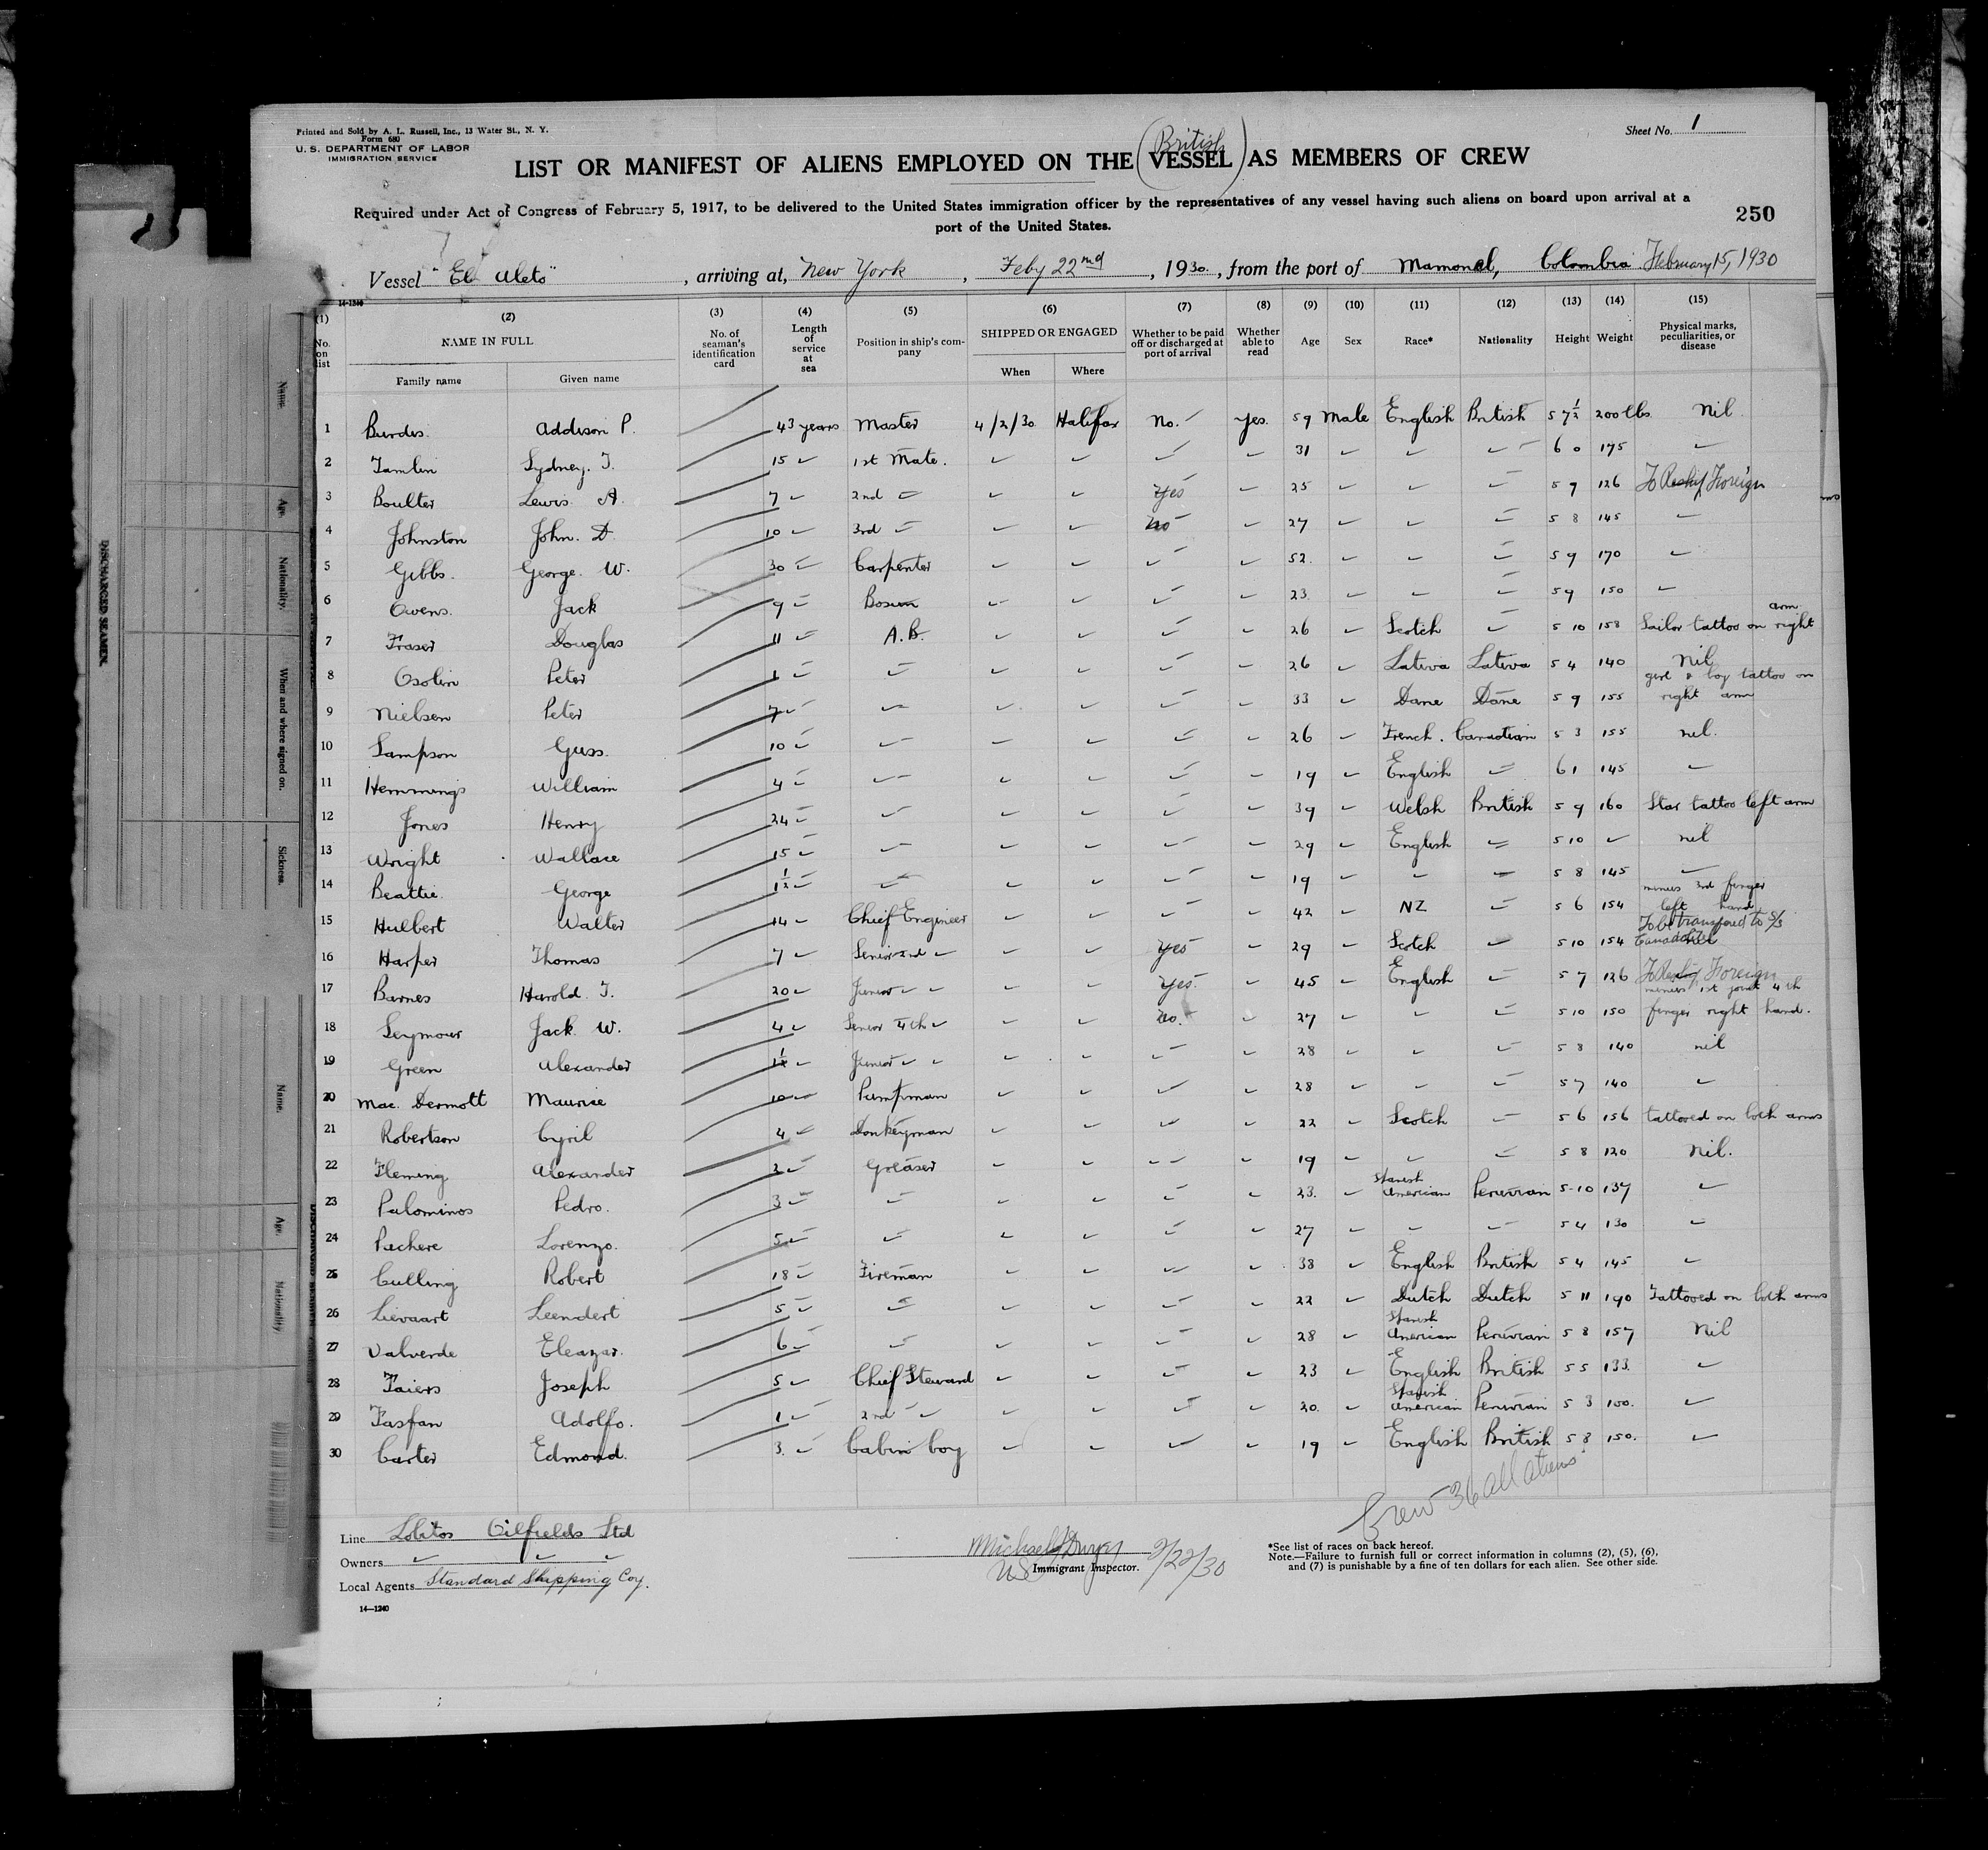 Printed and Sold by A. L. Russell, Inc., 13 Water St., N. Y.
Form 680
U. S. DEPARTMENT OF LABOR
IMMIGRATION SERVICE
Sheet No. 1
British
LIST OR MANIFEST OF ALIENS EMPLOYED ON THE (VESSEL) AS MEMBERS OF CREW
Required under Act of Congress of February 5, 1917, to be delivered to the United States immigration officer by the representatives of any vessel having such aliens on board upon arrival at a
port of the United States.
250
Vessel "El Aleto", arriving at, New York, Feby 22nd, 1930, from the port of Mamonal, Colombia February 15, 1930
14-1240
(1) (2) (3) (4) (5) (6) (7) (8) (9) (10) (11) (12) (13) (14) (15)
No. on list NAME IN FULL No. of seaman's identification card Length of service at sea Position in ship's company SHIPPED OR ENGAGED Whether to be paid off or discharged at port of arrival Whether able to read Age Sex Race* Nationality Height Weight Physical marks, peculiarities, or disease
Family name Given name When Where
1 Burdis Addison P. 43 years Master 4/2/30 Halifax No. Yes. 59 Male English British 5 7½ 200 lbs Nil
2 Tamlin Sydney. T. 15 1st Mate. 31 6 0 175
3 Boulter Lewis A. 7 2nd Yes 25 5 7 126 To Reship Foreign
4 Johnston John. D. 10 3rd No 27 5 8 145
5 Gibbs. George. W. 30 Carpenter 52. 5 9 170
6 Owens. Jack 9 Bosun 23. 5 9 150
7 Fraser Douglas 11 A.B. 26 Scotch 5 10 158 Sailor tattoo on right arm
8 Osolin Peter 1 26 Lativa Lativa 5 4 140 Nil
9 Nielsen Peter 7 33 Dane Dane 5 9 155 girl & boy tattoo on right arm
10 Sampson Guss. 10 26 French. Canadian 5 3 155 nil.
11 Hemmings William 4 19 English 6 1 145
12 Jones Henry 24 39 Welsh British 5 9 160 Star tattoo left arm
13 Wright Wallace 15 29 English 5 10 nil
14 Beattie George 1½ 19 5 8 145
15 Hulbert Walter 14 Chief Engineer 42 NZ 5 6 154 minus 3rd finger left hand
16 Harper Thomas 7 Senior 2nd Yes 29 Scotch 5 10 154 To be transfered to S/S
17 Barnes Harold T. 20 Junior Yes. 45 English 5 7 126 To Reship Foreign
18 Seymour Jack W. 4 Senior 4th No. 27 5 10 150 minus 1st joint 4th finger right hand.
19 Green Alexander 1½ Junior 28 5 8 140 nil
20 Mac. Dermott Maurice 10 Pumpman 28 5 7 140
21 Robertson Cyril 4 Donkeyman 22 Scotch 5 6 156 tattooed on both arms
22 Fleming Alexander 2 Greaser 19 5 8 120 Nil.
23 Palominos Pedro. 3 23. Spanish American Peruvian 5-10 137
24 Pachere Lorenzo. 5 27 5 4 130
25 Culling Robert 18 Fireman 38 English British 5 4 145
26 Lievaart Leendert 5 22 Dutch Dutch 5 11 190 Tattooed on both arms
27 Valverde Eleazar. 6 28 Spanish American Peruvian 5 8 157 Nil
28 Taiers Joseph 5 Chief Steward 23 English British 5 5 133
29 Tasfan Adolfo. 1 2nd 20. Spanish American Peruvian 5 3 100.
30 Carter Edmond. 3. Cabin boy 19 English British 5 8 150.
Crew 36 all aliens
Line Lobitos Oilfields Ltd
Owners
Local Agents Standard Shipping Coy.
14—1240
Michael Dwyer 2/22/30
US Immigrant Inspector.
*See list of races on back hereof.
Note.—Failure to furnish full or correct information in columns (2), (5), (6),
and (7) is punishable by a fine of ten dollars for each alien. See other side.
DISCHARGED SEAMEN.
Name.
Age.
Nationality.
When and where signed on.
Sickness.
Name.
Age.
Nationality